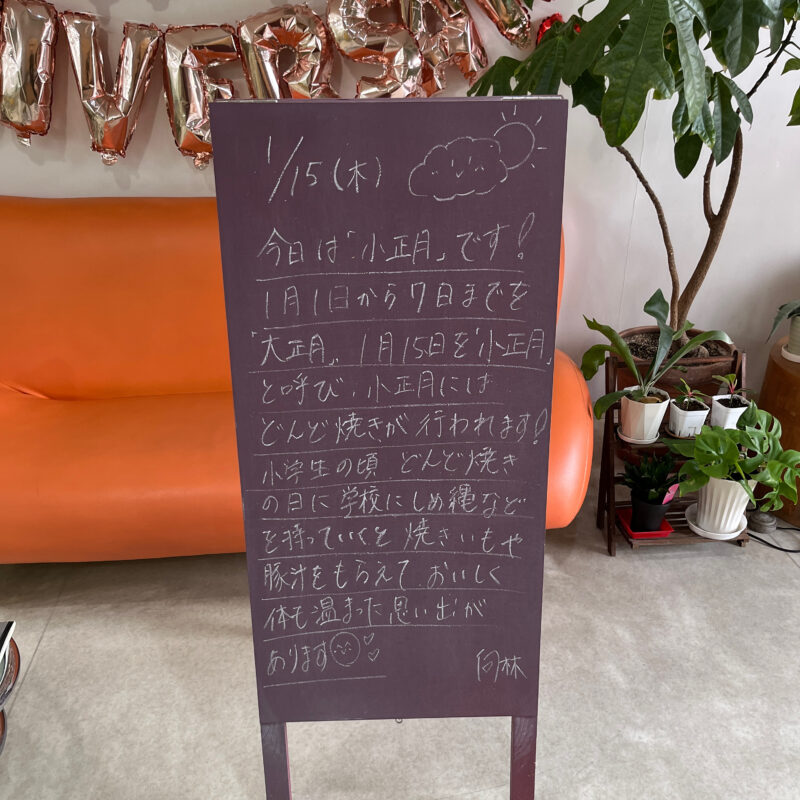 NIVERSA
1/15(木)
今日は「小正月」です!
1月1日から7日までを
「大正月」、1月15日を「小正月」
と呼び、小正月には
どんど焼きが行われます!
小学生の頃、どんど焼き
の日に学校にしめ縄など
を持っていくと焼きいもや
豚汁をもらえておいしく
体も温まった思い出が
あります
向林